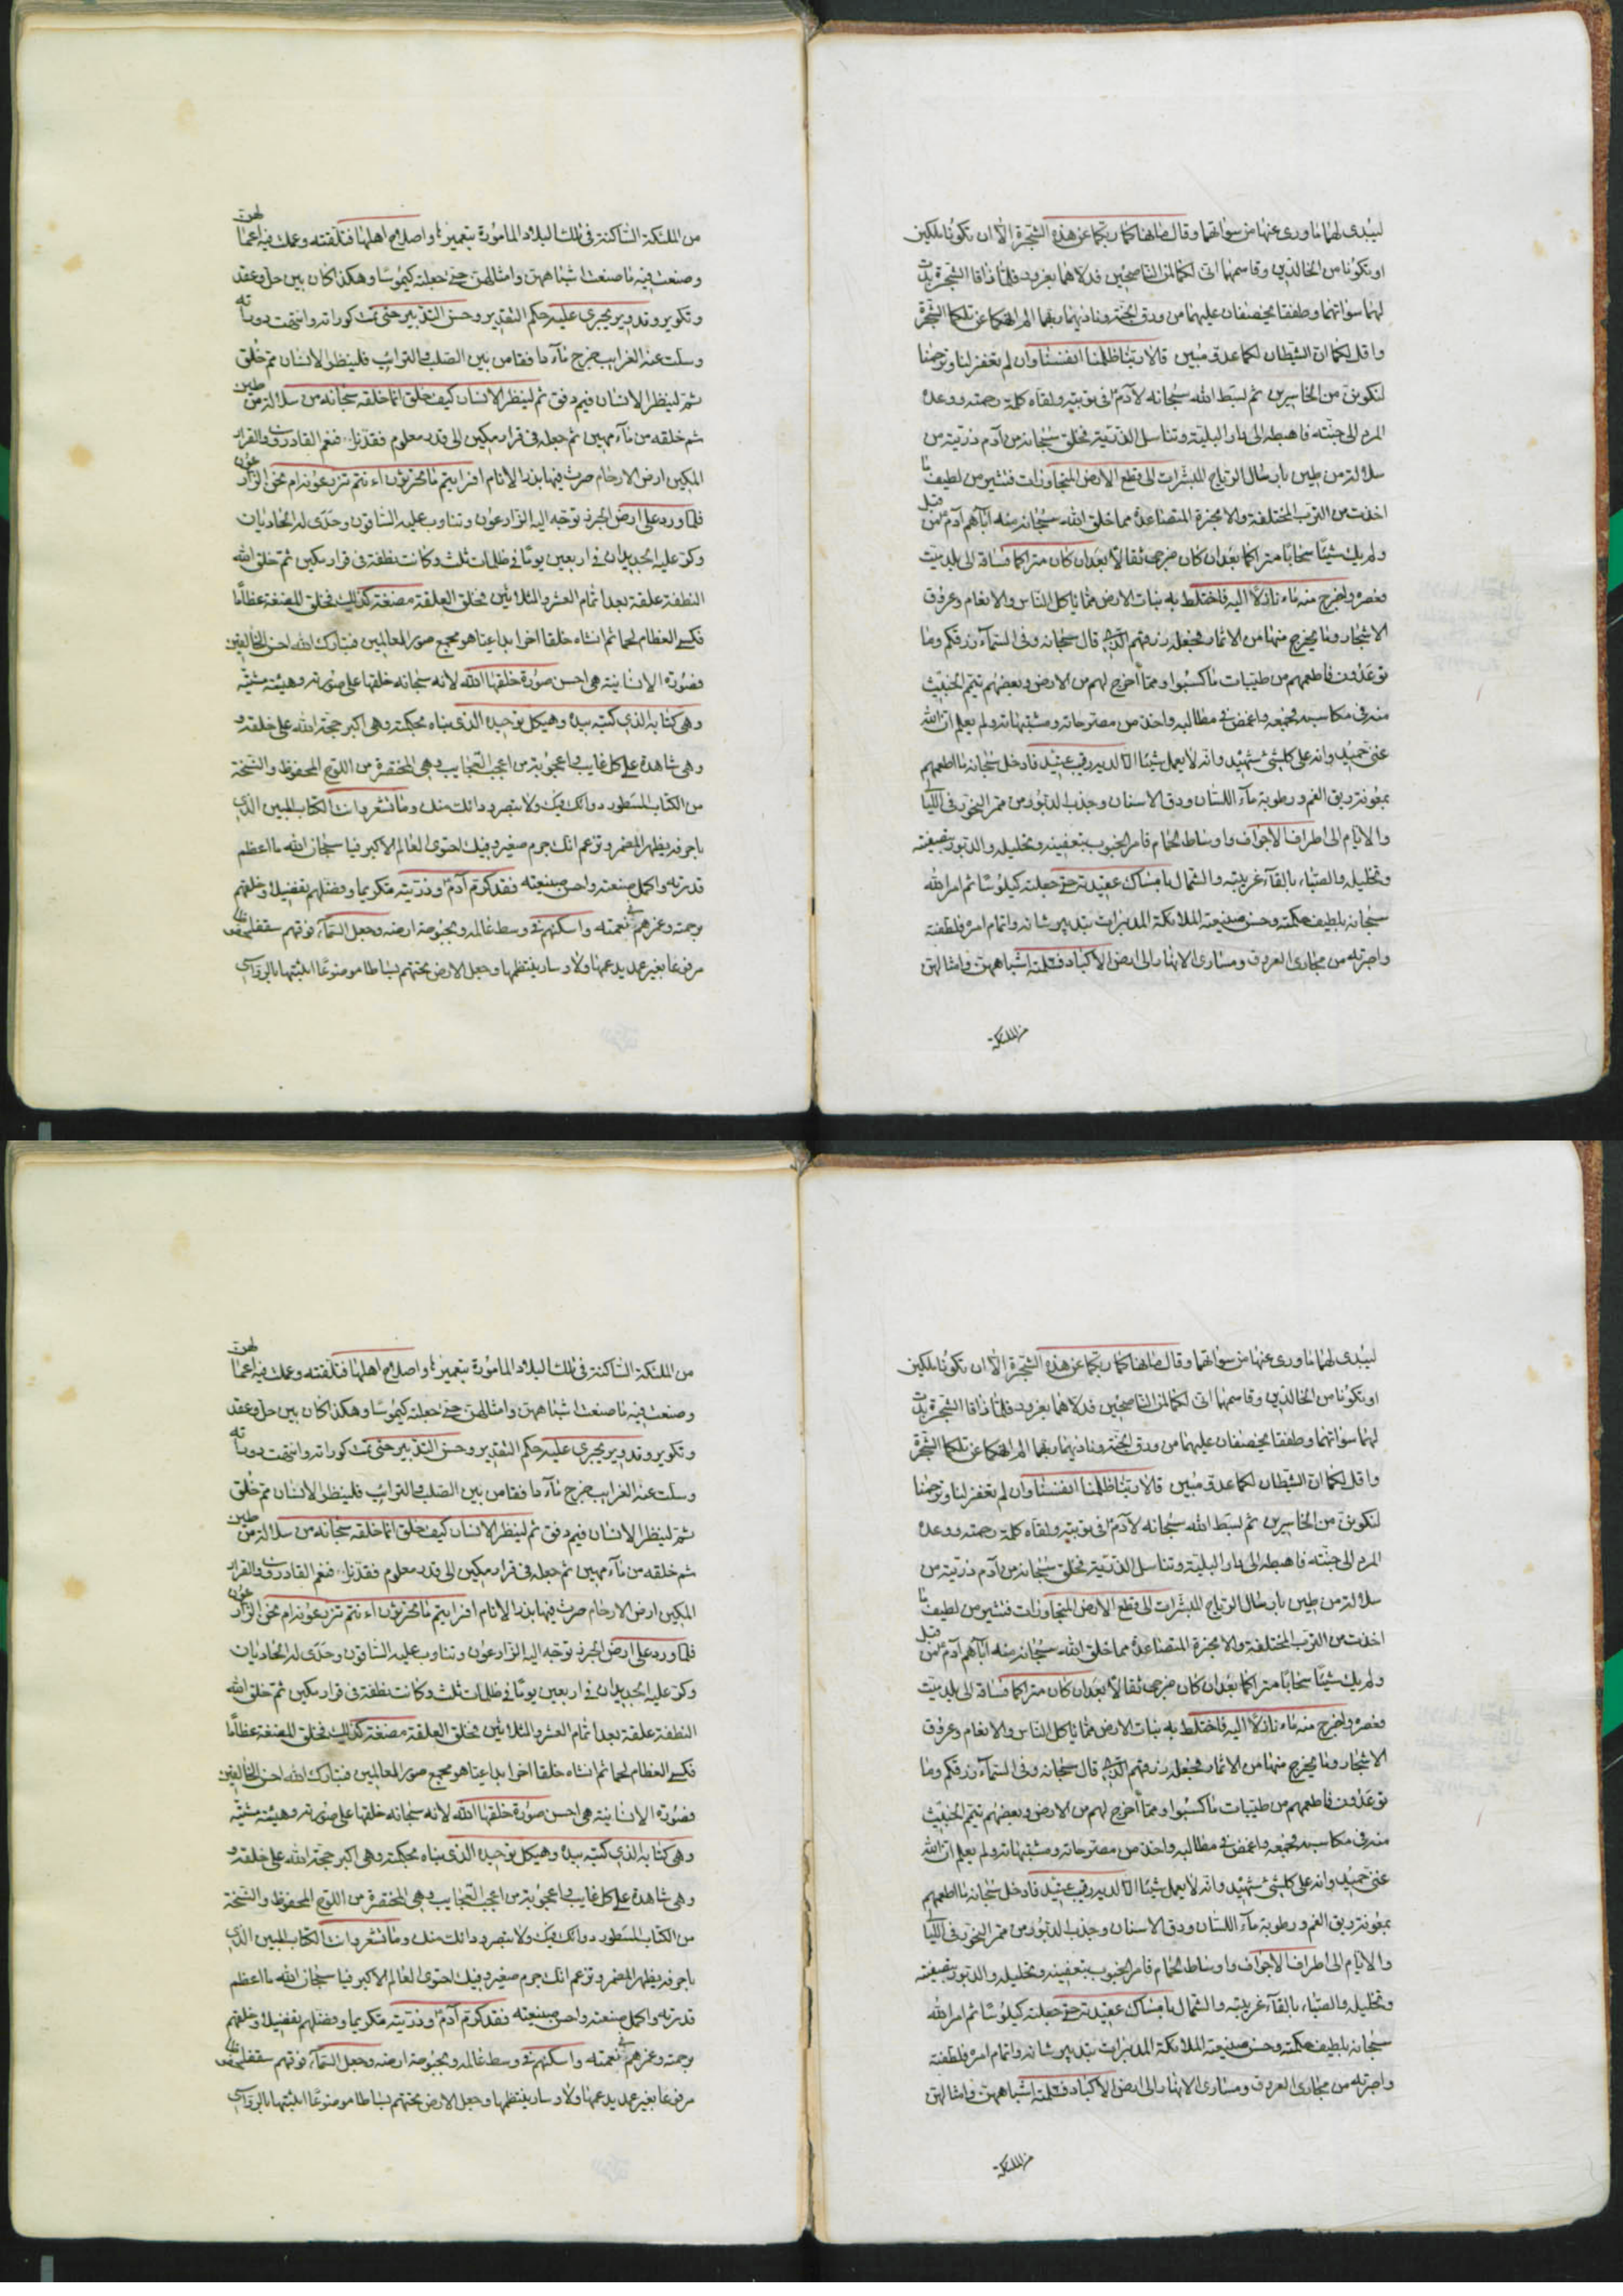 ليبدى لهما ماورى عنهما من سوآتهما وقال مانهاكما ربكما عن هذه الشجرة الا ان تكونا ملكين
او تكونا من الخالدين وقاسمهما انى لكما لمن الناصحين فدلاهما بغرور فلما ذاقا الشجرة بدت
لهما سوآتهما وطفقا يخصفان عليهما من ورق الجنة وناديهما ربهما الم انهكما عن تلكما الشجرة
واقل لكما ان الشيطان لكما عدو مبين قالا ربنا ظلمنا انفسنا وان لم تغفر لنا وترحمنا
لنكونن من الخاسرين ثم بسط الله سبحانه لآدم فى توبته ولقاه كلمة رحمته ووعده
المرد الى جنته فاهبطه الى دار البلية وتناسل الذرية فخلق سبحانه من آدم ذريته من
سلالة من طين بارسال الرياح المبشرات الى قطع الارض المتجاورات فتثير من لطيف ما
اخذت من الترب المختلفة والابخرة المتصاعدة مما خلق الله سبحانه منه آباهم آدم من قبل
ولم يك شيئا سحابا متراكما بعد ان كان مزجى ثقالا بعد ان كان متراكما فساقه الى بلد ميت
وعصره واخرج منه ماء نازلا اليه فاختلط به نبات الارض مما ياكل الناس والانعام وعروق
الاشجار وما يخرج منها من الاثمار فجعل رزقهم قال سبحانه وفى السمآء رزقكم وما
توعدون فاطعمهم من طيبات ما كسبوا ومما اخرج لهم من الارض وبعضهم تيمم الخبيث
منه فى مكاسبه فجمعه واغمض فى مطالبه واخذ من مصرحاته ومشتبهاته ولم يعلم ان الله
غنى حميد وانه على كلشئ شهيد وانه لا يعمل شيئا الا لديه رقيب عتيد فادخل سبحانه ما اطعمهم
بمعونة ريق الفم ورطوبة مآء اللسان ودق الاسنان وجذب الدبور من ممر البخور فى الليالى
والايام الى اطراف الاجواف واوساط الخام فامر الجنوب بتعفينه وتحليله والدبور بتصفيته
وتحليله والصباء بالقآء غريبته والشمال بامساك عقيدته حتى جعلته كيلوسا ثم امر الله
سبحانه بلطيف حكمته وحسن صنيعته الملائكة المدبرات بتدبير شانه واتمام امره فلطفته
واجرته من مجارى العروق ومسارى الانهار الى ارض الاكباد فتلقته اشباههن وامثالهن
من الملئكة
من الملئكة الساكنة فى تلك البلاد المامورة بتعميرها واصلاح اهلها فتلقفته وعملت فيه اعمالهن
وصنعت فيه ما صنعت اشباههن وامثالهن حتى جعلته كيموسا وهكذا كان بين حل وعقد
وتكوير وتدوير يجرى عليه حكم التقدير وحسن التدبير حتى تمت كوراته وانتهت دوراته
وسلت عنه الغرايب فخرج مآء دافقا من بين الصلب والترائب فلينظر الانسان مم خلق
ثم لينظر الانسان فيم دفق ثم لينظر الانسان كيف خلق انما خلقه سبحانه من سلالة من طين
ثم خلقه من مآء مهين ثم جعله فى قرار مكين الى قدر معلوم فقدرنا فنعم القادرون والقرار
المكين ارض الارحام حرث فيها بذر الانام افرايتم ما تحرثون ءانتم تزرعونه ام نحن الزارعون
فلما ورد على ارض الجرز توجه اليه الزارعون وتناوب عليه الساقون وحدى له الحاديان
وكر عليه الجديدان فى اربعين يوما فى ظلمات ثلث وكانت نطفة فى قرار مكين ثم خلق الله
النطفة علقة بعد اتمام العشر والثلاثين فخلق العلقة مضغة كذلك فخلق المضغة عظاما
فكسى العظام لحما ثم انشاه خلقا اخر ابداعيا هو مجمع صور العالمين فتبارك الله احسن الخالقين
فصورة الانسانية هى احسن صورة خلقها الله لانه سبحانه خلقها على صورته وهيئة مشيته
وهى كتابه الذى كتبه بيده وهيكل توحيده الذى بناه بحكمته وهى اكبر حجة الله على خلقه و
وهى شاهدة على كل غايب واعجوبة من اعجب العجايب وهى المختصرة من اللوح المحفوظ والنسخة
من الكتاب المسطور دوائك فيك ولا تبصر ودائك منك وما تشعر وانت الكتاب المبين الذى
باحرفه يظهر المضمر وتزعم انك جرم صغير وفيك احتوى العالم الاكبر فيا سبحان الله ما اعظم
قدرته واكمل صنعته واحسن صنيعته فقد كرم آدم وذريته تكريما وفضلهم تفضيلا وخلقهم
برحمته وغمرهم فى نعمته واسكنهم فى وسط عالمه وبحبوحة ارضه وجعل السمآء فوقهم سقفا محفوظا
مرفوعا بغير عمد يدعمها ولا دسار ينتظمها وجعل الارض تحتهم بساطا موضوعا اثبتها بالرواسى
ليبدى لهما ماورى عنهما من سوآتهما وقال مانهاكما ربكما عن هذه الشجرة الا ان تكونا ملكين
او تكونا من الخالدين وقاسمهما انى لكما لمن الناصحين فدلاهما بغرور فلما ذاقا الشجرة بدت
لهما سوآتهما وطفقا يخصفان عليهما من ورق الجنة وناديهما ربهما الم انهكما عن تلكما الشجرة
واقل لكما ان الشيطان لكما عدو مبين قالا ربنا ظلمنا انفسنا وان لم تغفر لنا وترحمنا
لنكونن من الخاسرين ثم بسط الله سبحانه لآدم فى توبته ولقاه كلمة رحمته ووعده
المرد الى جنته فاهبطه الى دار البلية وتناسل الذرية فخلق سبحانه من آدم ذريته من
سلالة من طين بارسال الرياح المبشرات الى قطع الارض المتجاورات فتثير من لطيف ما
اخذت من الترب المختلفة والابخرة المتصاعدة مما خلق الله سبحانه منه آباهم آدم من قبل
ولم يك شيئا سحابا متراكما بعد ان كان مزجى ثقالا بعد ان كان متراكما فساقه الى بلد ميت
وعصره واخرج منه ماء نازلا اليه فاختلط به نبات الارض مما ياكل الناس والانعام وعروق
الاشجار وما يخرج منها من الاثمار فجعل رزقهم قال سبحانه وفى السمآء رزقكم وما
توعدون فاطعمهم من طيبات ما كسبوا ومما اخرج لهم من الارض وبعضهم تيمم الخبيث
منه فى مكاسبه فجمعه واغمض فى مطالبه واخذ من مصرحاته ومشتبهاته ولم يعلم ان الله
غنى حميد وانه على كلشئ شهيد وانه لا يعمل شيئا الا لديه رقيب عتيد فادخل سبحانه ما اطعمهم
بمعونة ريق الفم ورطوبة مآء اللسان ودق الاسنان وجذب الدبور من ممر البخور فى الليالى
والايام الى اطراف الاجواف واوساط الخام فامر الجنوب بتعفينه وتحليله والدبور بتصفيته
وتحليله والصباء بالقآء غريبته والشمال بامساك عقيدته حتى جعلته كيلوسا ثم امر الله
سبحانه بلطيف حكمته وحسن صنيعته الملائكة المدبرات بتدبير شانه واتمام امره فلطفته
واجرته من مجارى العروق ومسارى الانهار الى ارض الاكباد فتلقته اشباههن وامثالهن
من الملئكة
من الملئكة الساكنة فى تلك البلاد المامورة بتعميرها واصلاح اهلها فتلقفته وعملت فيه اعمالهن
وصنعت فيه ما صنعت اشباههن وامثالهن حتى جعلته كيموسا وهكذا كان بين حل وعقد
وتكوير وتدوير يجرى عليه حكم التقدير وحسن التدبير حتى تمت كوراته وانتهت دوراته
وسلت عنه الغرايب فخرج مآء دافقا من بين الصلب والترائب فلينظر الانسان مم خلق
ثم لينظر الانسان فيم دفق ثم لينظر الانسان كيف خلق انما خلقه سبحانه من سلالة من طين
ثم خلقه من مآء مهين ثم جعله فى قرار مكين الى قدر معلوم فقدرنا فنعم القادرون والقرار
المكين ارض الارحام حرث فيها بذر الانام افرايتم ما تحرثون ءانتم تزرعونه ام نحن الزارعون
فلما ورد على ارض الجرز توجه اليه الزارعون وتناوب عليه الساقون وحدى له الحاديان
وكر عليه الجديدان فى اربعين يوما فى ظلمات ثلث وكانت نطفة فى قرار مكين ثم خلق الله
النطفة علقة بعد اتمام العشر والثلاثين فخلق العلقة مضغة كذلك فخلق المضغة عظاما
فكسى العظام لحما ثم انشاه خلقا اخر ابداعيا هو مجمع صور العالمين فتبارك الله احسن الخالقين
فصورة الانسانية هى احسن صورة خلقها الله لانه سبحانه خلقها على صورته وهيئة مشيته
وهى كتابه الذى كتبه بيده وهيكل توحيده الذى بناه بحكمته وهى اكبر حجة الله على خلقه و
وهى شاهدة على كل غايب واعجوبة من اعجب العجايب وهى المختصرة من اللوح المحفوظ والنسخة
من الكتاب المسطور دوائك فيك ولا تبصر ودائك منك وما تشعر وانت الكتاب المبين الذى
باحرفه يظهر المضمر وتزعم انك جرم صغير وفيك احتوى العالم الاكبر فيا سبحان الله ما اعظم
قدرته واكمل صنعته واحسن صنيعته فقد كرم آدم وذريته تكريما وفضلهم تفضيلا وخلقهم
برحمته وغمرهم فى نعمته واسكنهم فى وسط عالمه وبحبوحة ارضه وجعل السمآء فوقهم سقفا محفوظا
مرفوعا بغير عمد يدعمها ولا دسار ينتظمها وجعل الارض تحتهم بساطا موضوعا اثبتها بالرواسى